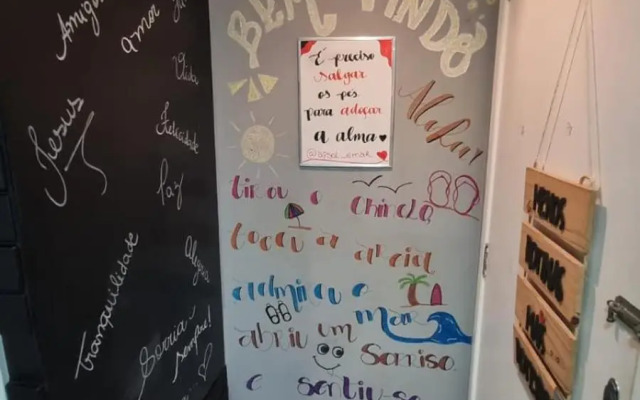 Jesus
amor
Vida
Felicidade
Paz
Tranquilidade
Sorria
sempre!
BEM VINDO
É preciso
salgar
os pés
para adoçar
a alma
tirou o chinelo
tocou a areia
admirou o mar
abriu um sorriso
e sentiu-se
MENOS
MAIS